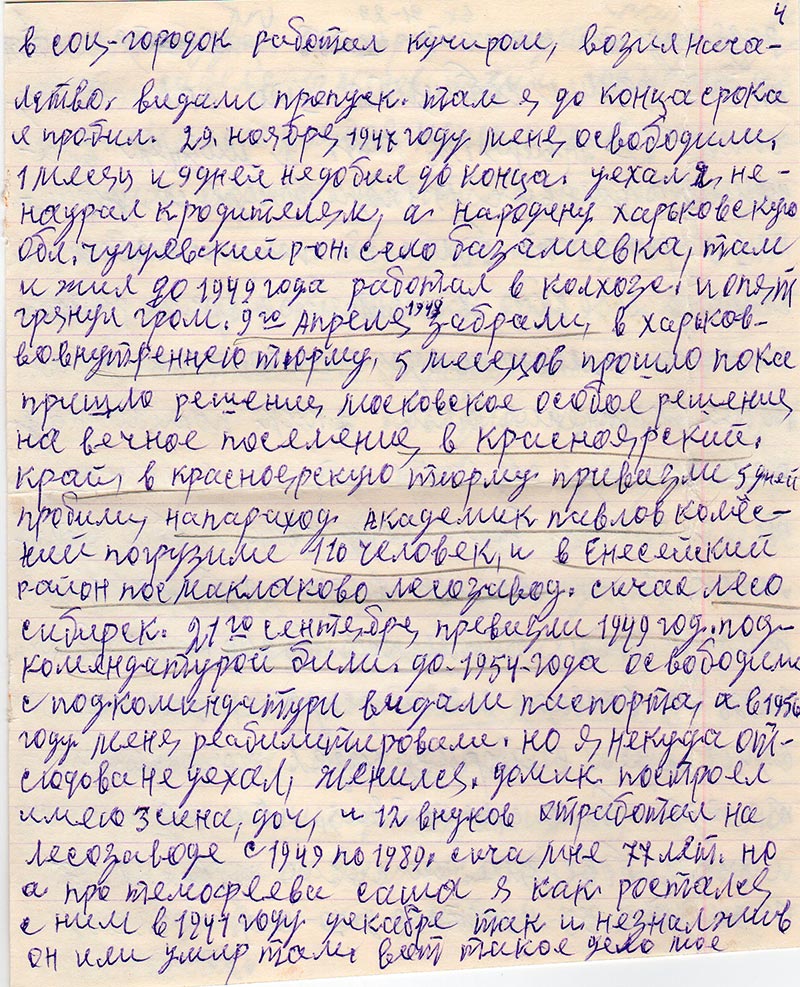 4
в соц-городок работал кучиром, возил нача-
лство. видали пропуск. там я до конца срока
я пробил. 29. ноября 1947 году меня освободили.
1 месец и 9 дней недобил до конца. уехал я не-
наурал к родителям, а народену харьковскую
обл. чугуевский р-он. село базалиевка, там
и жил до 1949 года работал в колхозе. и опят
грянул гром. 9го Апреля 1949 забрали, в харьков-
вовнутреннею тюрму, 5 месецов прошло пока
пришло решение, московское особое решение
на вечное поселение, в Красноярский.
край, в красноерскую тюрму привизли 5 дней
пробили, на параход. Академик павлов колёс-
ний погрузили 110 человек, и в Енесейский
район пос маклаково лесозавод. сичас лесо
сибирск. 21го сентебря превизли 1949 год. под-
комендатурой били. до-1954-года освободили
с под командатури видали паспорта, а в 1956
году меня реабилитировали. но я некуда от-
сюдова не уехал, женился. домик построел
имею 3 сина, доч, и 12 внуков отработал на
лесозаводе с 1949 по 1989. сича мне 77 лет. но
а про темофееви саша я как росталса
с ним в 1947 году декабре так и незнал жив
он или умир там. вот такое дело мое